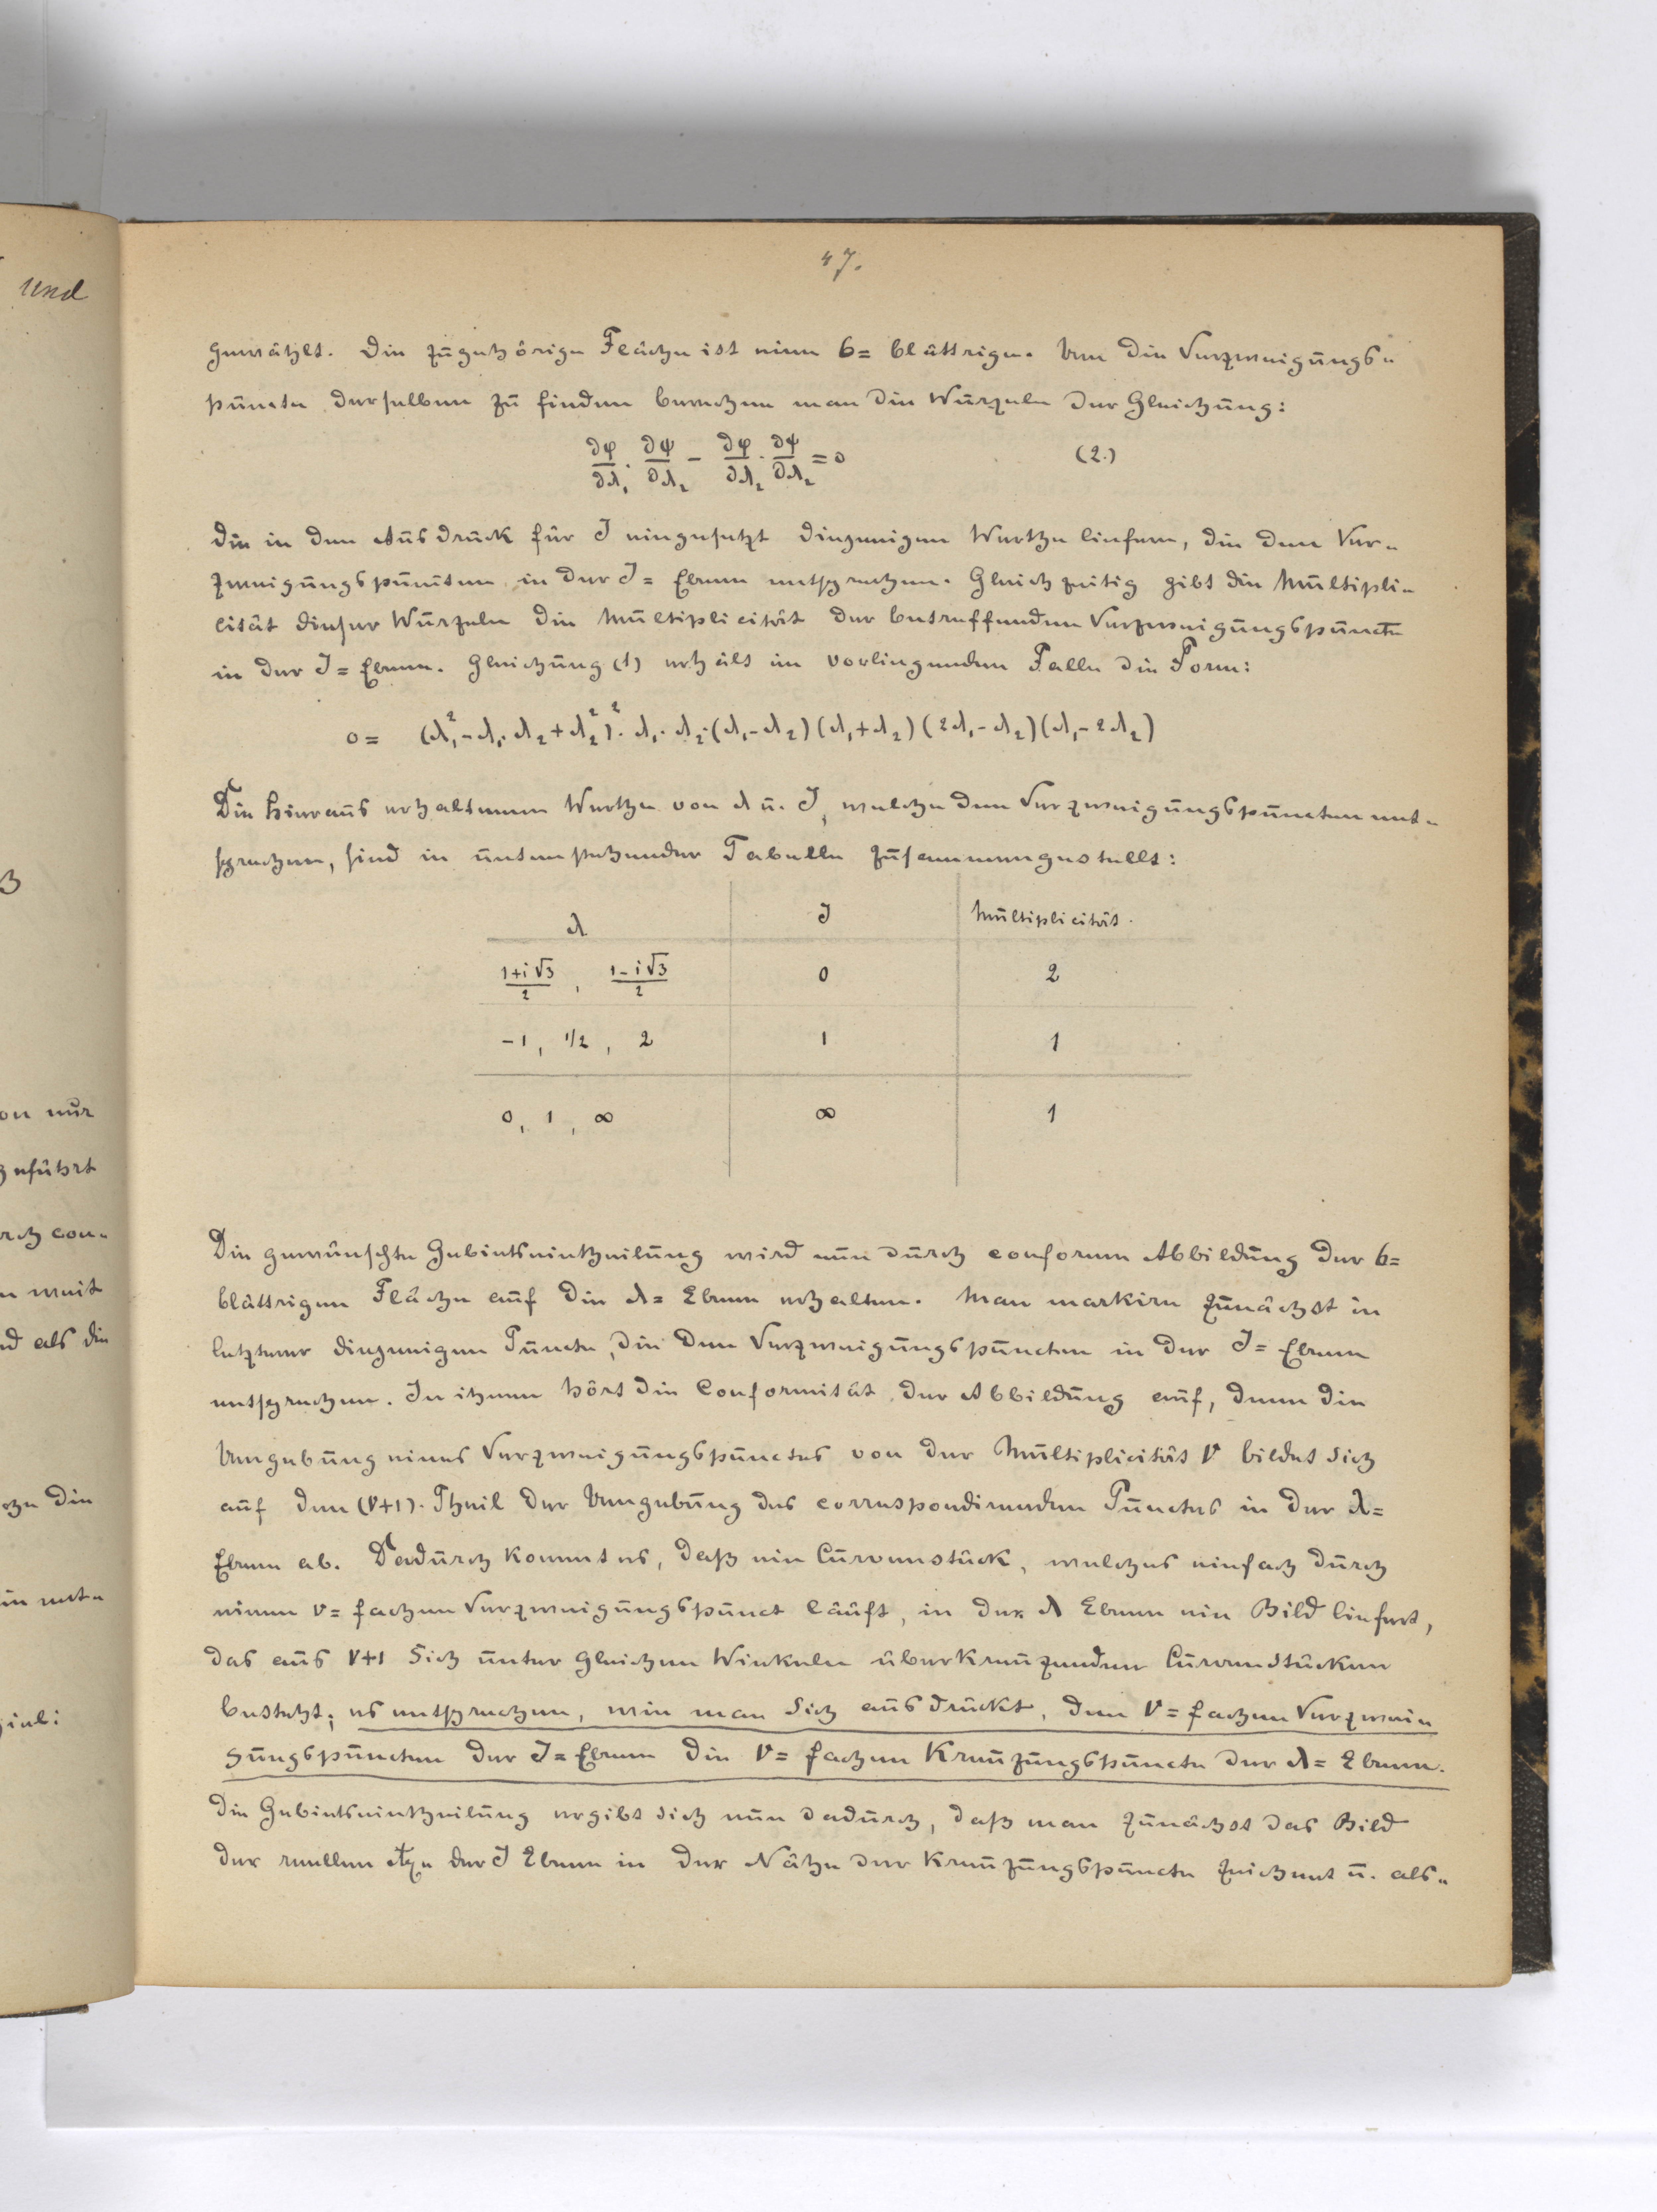 und
on nur
geführt
rch con-
n weit
nd als die
che die
in ent-
47.
gewählt. Die zugehörige Fläche ist eine 6= blättrige. Um die Verzweigungs-
puncte derselben zu finden berechne man die Wurzeln der Gleichung:
∂φ/∂λ₁ · ∂ψ/∂λ₂ − ∂φ/∂λ₂ · ∂ψ/∂λ₂ = 0 (2.)
die in den Ausdruck für J eingesetzt diejenigen Werthe liefern, die den Ver-
zweigungspuncten in der J= Ebene entsprechen. Gleichzeitig gibt die Multipli-
cität dieser Wurzeln die Multiplicität der betreffenden Verzweigungspuncte
in der J= Ebene. Gleichung (1) erhält im vorliegenden Falle die Form:
0 = (λ₁² − λ₁·λ₂ + λ₂²)²· λ₁· λ₂·(λ₁ − λ₂)(λ₁ + λ₂)(2λ₁ − λ₂)(λ₁ − 2λ₂)
Die hieraus erhaltenen Werthe von λ u. J, welche den Verzweigungspuncten ent-
sprechen, sind in untenstehender Tabelle zusammengestellt:
λ J Multiplicität.
(1+i√3)/2 , (1−i√3)/2 0 2
−1, 1/2, 2 1 1
0, 1, ∞ ∞ 1
Die gewünschte Gebietseintheilung wird nun durch conforme Abbildung der 6=
blättrigen Fläche auf die λ= Ebene erhalten. Man markire zunächst in
letzterer diejenigen Puncte, die den Verzweigungspuncten in der J= Ebene
entsprechen. In ihnen hört die Conformität der Abbildung auf, denn die
Umgebung eines Verzweigungspunctes von der Multiplicität ν bildet sich
auf den (ν+1). Theil der Umgebung des correspondirenden Punctes in der λ=
Ebene ab. Dadurch kommt es, daß ein Curvenstück, welches einfach durch
einen ν= fachen Verzweigungspunct läuft, in der λ Ebene ein Bild liefert,
das aus ν+1 sich unter gleichen Winkeln überkreuzenden Curvenstücken
besteht; es entsprechen, wie man sich ausdrückt, den ν= fachen Verzwei-
gungspuncten der J= Ebene die ν= fachen Kreuzungspuncte der λ= Ebene.
Die Gebietseintheilung ergibt sich nun dadurch, daß man zunächst das Bild
der reellen Axe der J Ebene in der Nähe der Kreuzungspuncte zeichnet u. als-